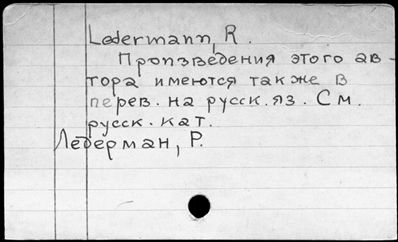 Ledermann, R.
Произведения этого ав-
тора имеются также в
перев. на русск. яз. См.
русск. кат.
Ледерман, Р.